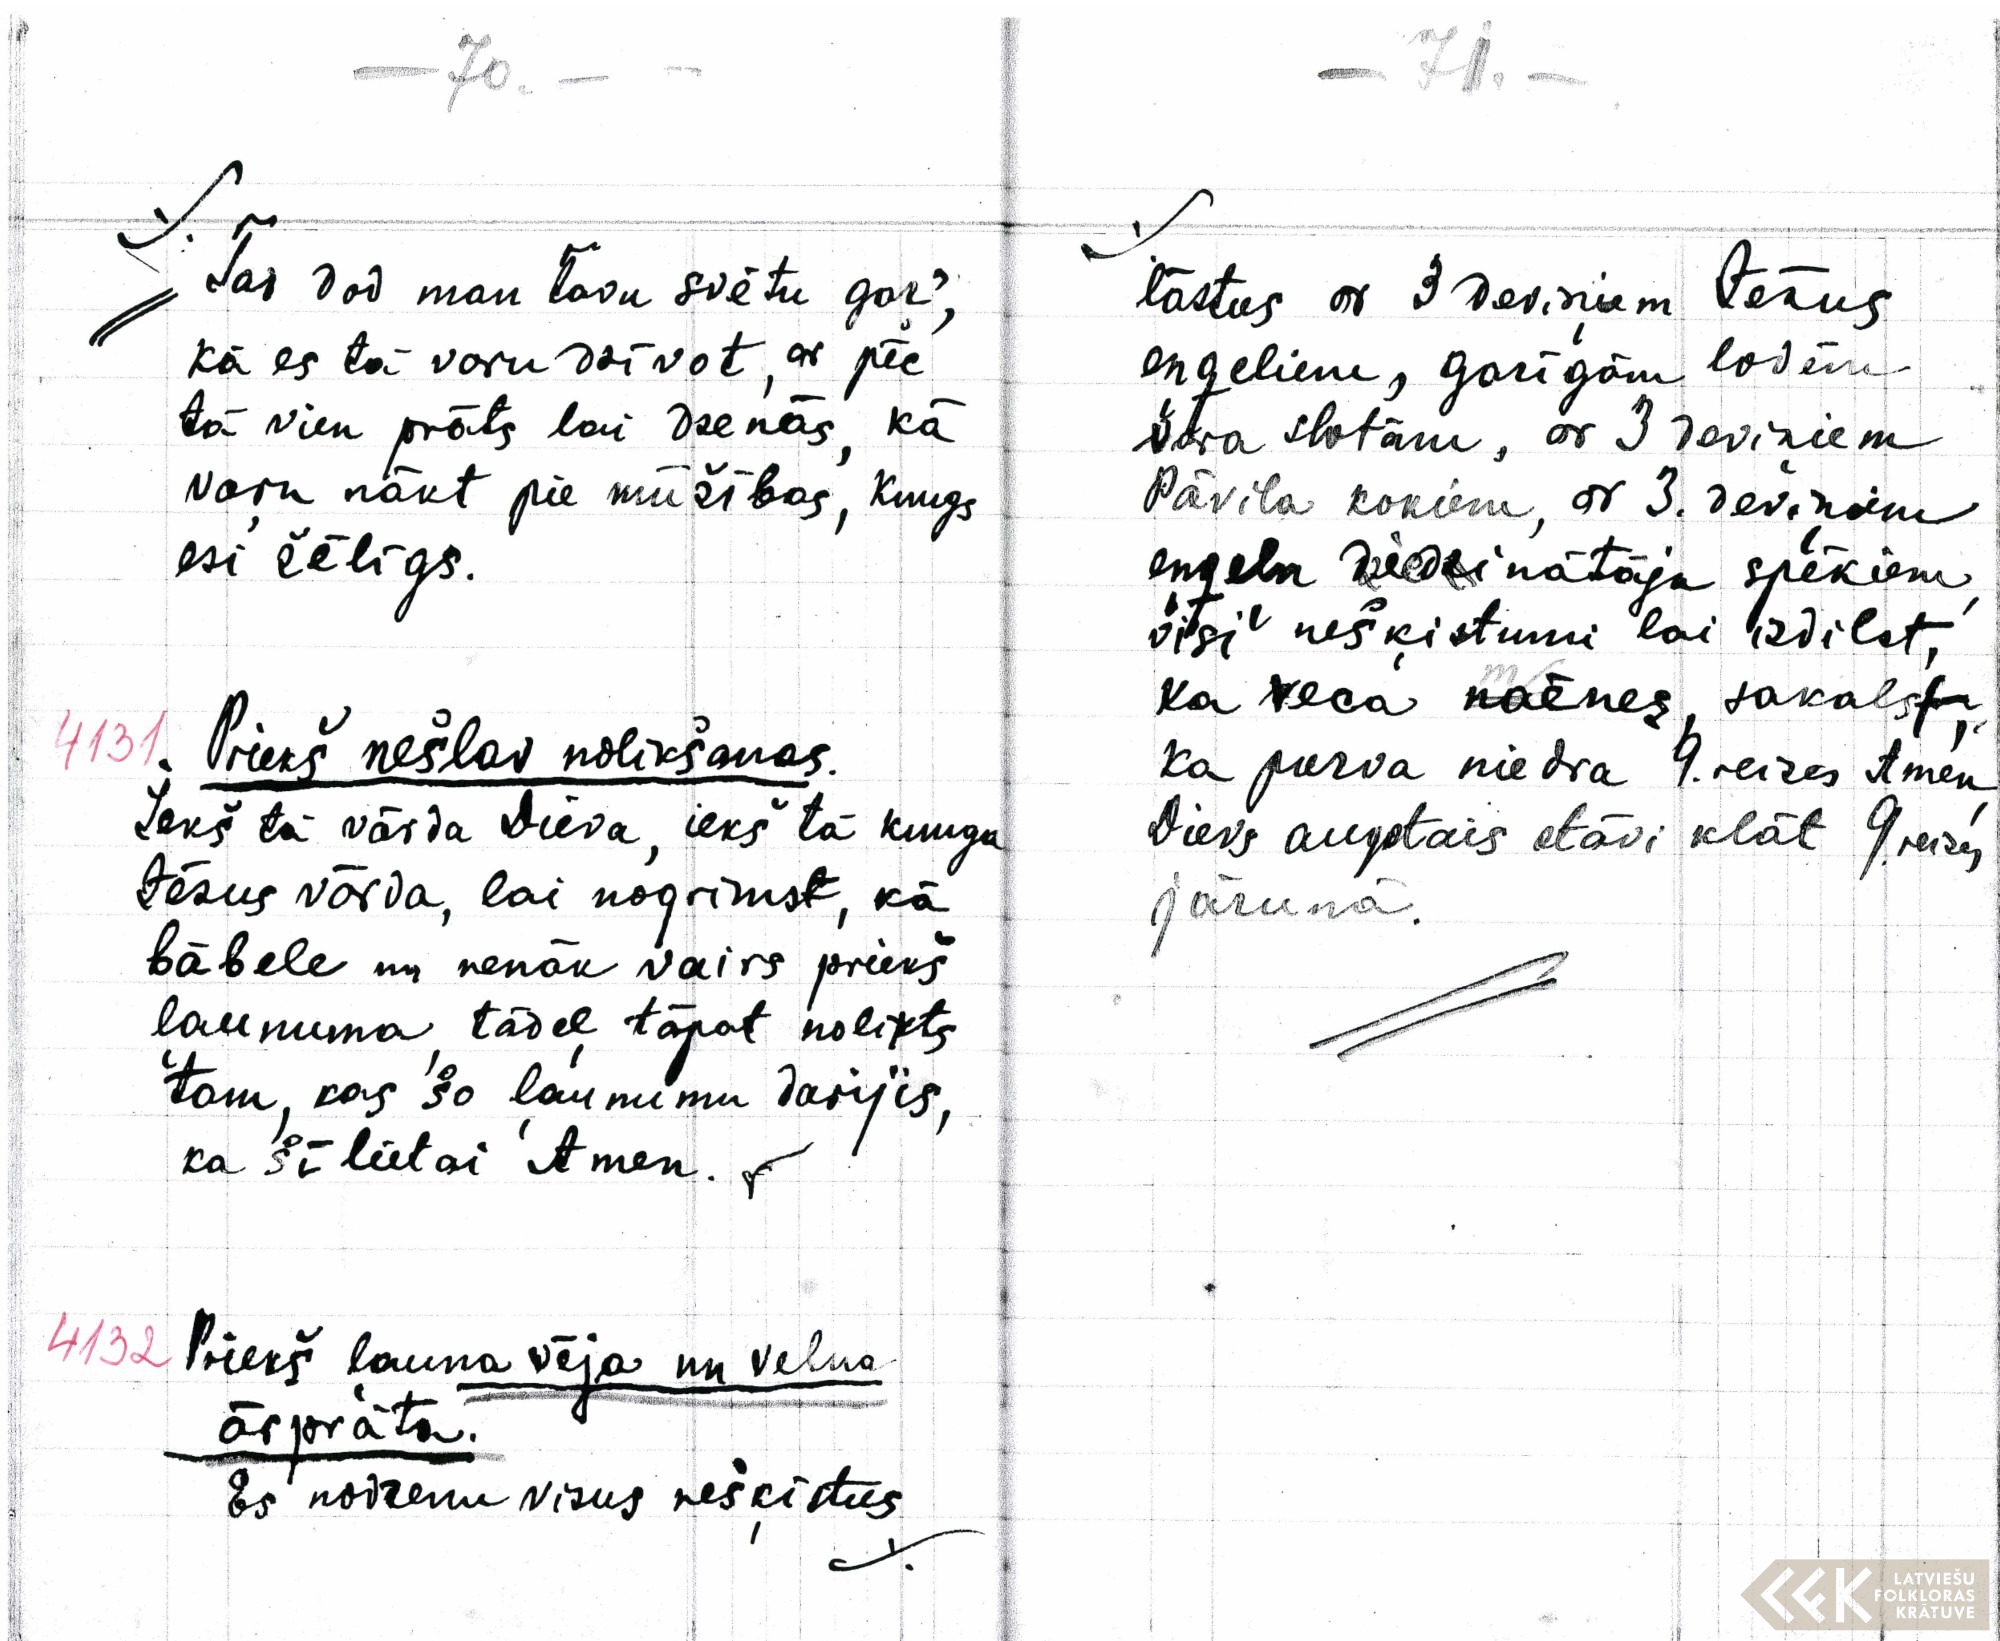 — 70. — -
Tad dod man Tavu svētu gar',
kā es tā varu dzīvot, ar pēc
tā vien prāts lai dzenās, kā
varu nākt pie mūžības, Kungs
esi žēlīgs.
4131. Priekš nešlav nolikšanas.
Iekš tā vārda Dieva, iekš tā kunga
Jēzus vārda, lai nogrimst, kā
bābele un nenāk vairs priekš
ļaunuma, tādeļ tāpat nolikts
tam, kas šo ļaunumu darijis,
ka šī lietai Amen.
4132 Priekš ļauna vēja un velna
ārprāta.
Es nodzenu visus nešķīstus
— 71. —
lāstus ar 3 deviņiem Jēzus
engeliem, garīgām lodēm
slotām, ar 3 deviņiem
Pāvila kokiem, ar 3. deviņiem
engeļu spēkiem,
visi nešķistumi lai izdilst,
ka veca mēnes, sakalst,
ka purva niedra 9. reizes Amen,
Dievs augstais stāvi klāt 9. reizes
jārunā.
LATVIEŠU
FOLKLORAS
KRĀTUVE